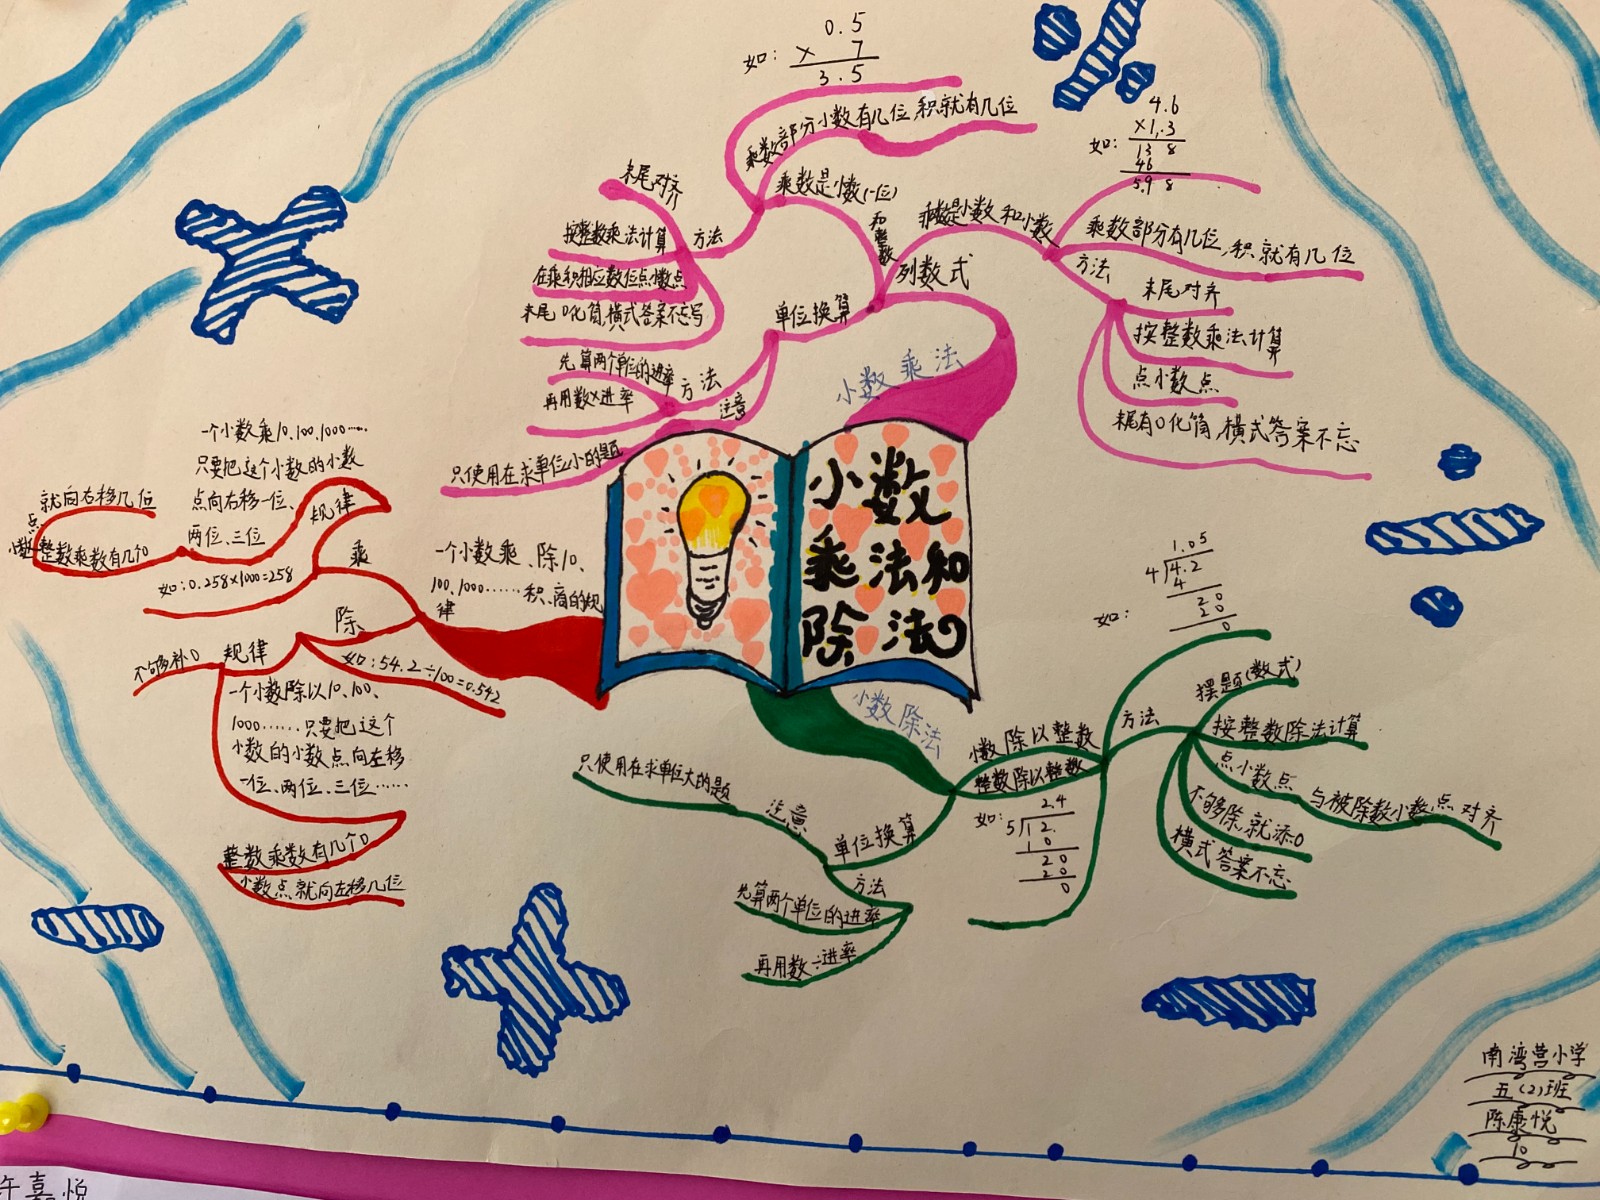 小数
乘法和
除法
小数乘法
列数式
乘数是小数(一位)
和整数
如:
0.5
× 7
3.5
乘数部分小数有几位,积就有几位
方法
末尾对齐
按整数乘法计算
在乘积相应数位点小数点
末尾0化简,横式答案不忘写
乘数是小数和小数
如:
4.6
×1.3
13 8
46
5.9 8
乘数部分有几位,积就有几位
方法
末尾对齐
按整数乘法计算
点小数点
末尾有0化简,横式答案不忘
单位换算
方法
先算两个单位的进率
再用数×进率
注意
只使用在求单位小的题
一个小数乘、除10、
100、1000……积、商的规
律
乘
规律
一个小数乘10、100、1000……
只要把这个小数的小数
点向右移一位、
两位、三位
整数乘数有几个0
小数点
就向右移几位
如:0.258×1000=258
除
如:54.2÷100=0.542
规律
不够补0
一个小数除以10、100、
1000……只要把这个
小数的小数点向左移
一位、两位、三位……
整数乘数有几个0
小数点就向左移几位
小数除法
小数除以整数
整数除以整数
如:
1.05
4 4.2
4
20
20
0
如:
2.4
5 12.
10
20
20
0
方法
摆题(数式)
按整数除法计算
点小数点 与被除数小数点对齐
不够除,就添0
横式答案不忘
单位换算
注意
只使用在求单位大的题
方法
先算两个单位的进率
再用数÷进率
南湾营小学
五(2)班
陈康悦
10
许嘉悦